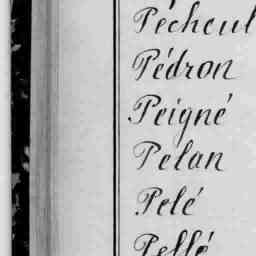 Péchcul
Pédron
Peigné
Pelan
Pelé
Pellé